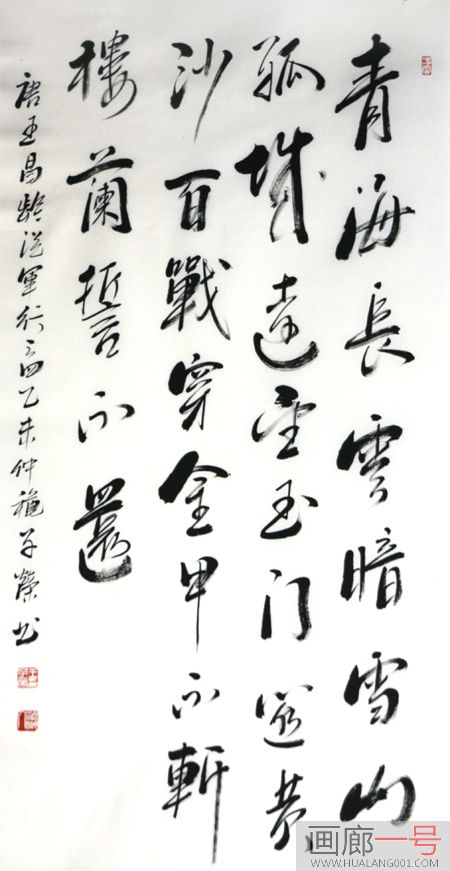 青海長雲暗雪山
孤城遠望玉门関黄
沙百戰穿金甲不斬
樓蘭誓不還
唐王昌齡從軍行之四乙未仲穐子榮书
画廊一号
WWW.HUALANG001.COM